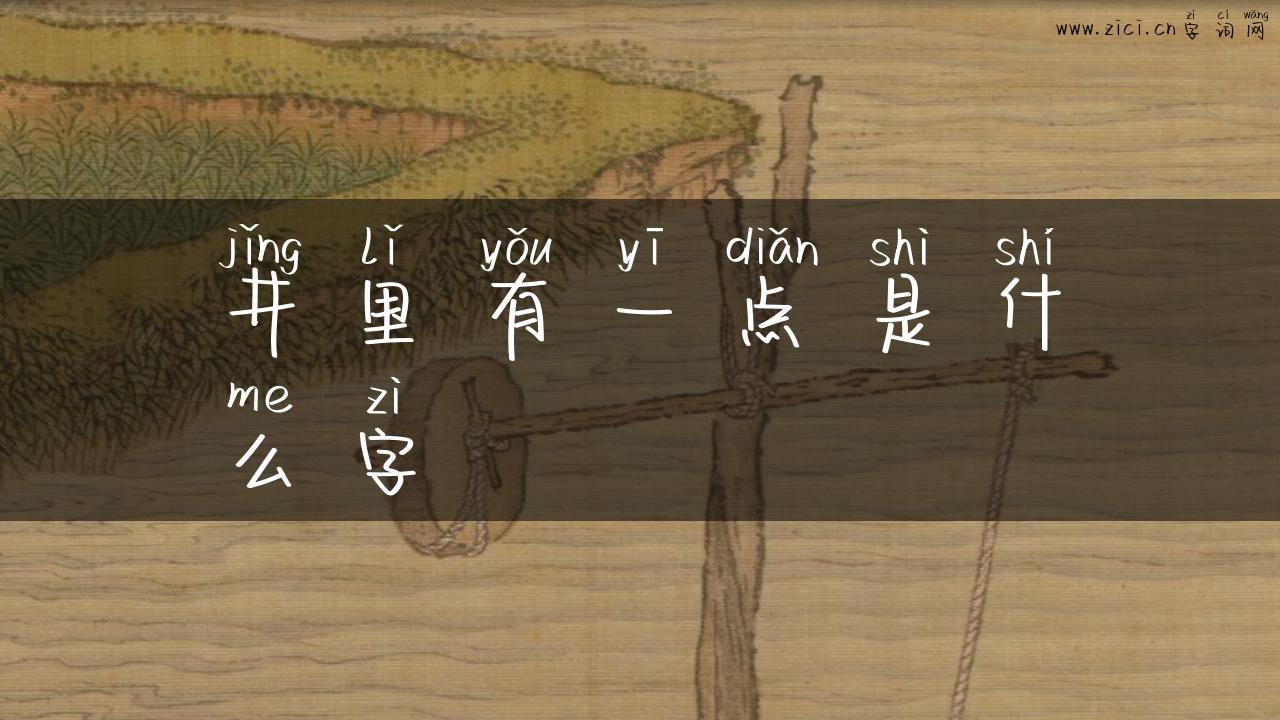 zì cí wǎng
www.zici.cn 字 词 网
jǐng lǐ yǒu yī diǎn shì shí
井 里 有 一 点 是 什
me zì
么 字